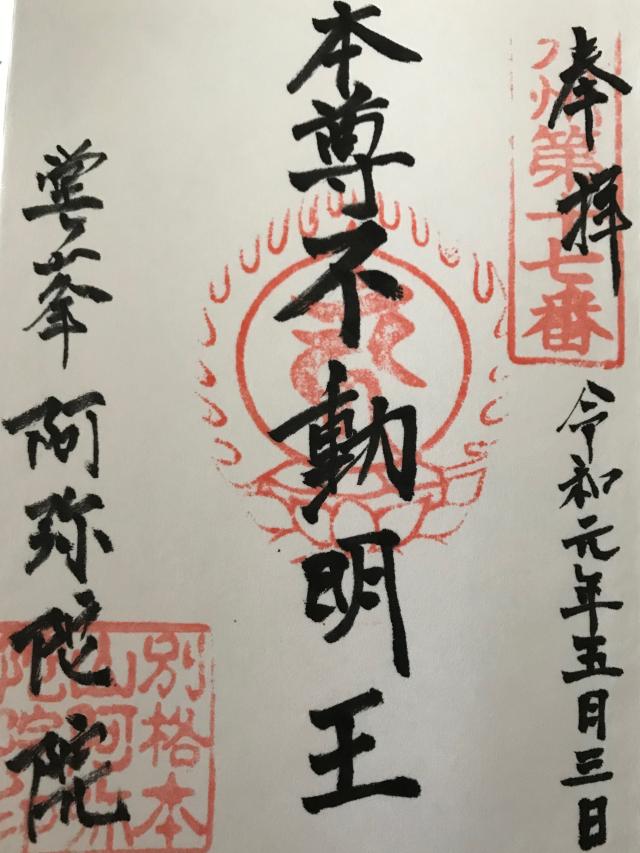 奉拝
九州第十七番
令和元年五月三日
本尊不動明王
阿弥陀院
別格本
山阿弥
陀院印